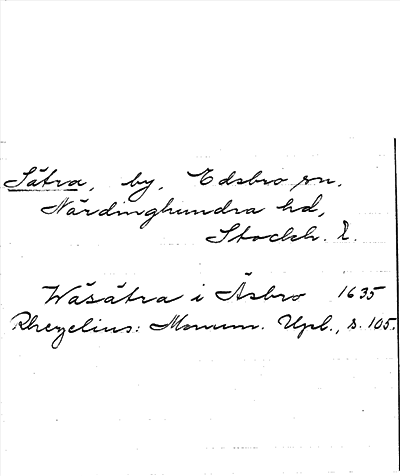 Sätra, by, Edsbro sn,
Närdinghundra hd,
Stockh. l.
Wäsätra i Äsbro 1635
Rhezelius: Monum. Upl., s. 105.